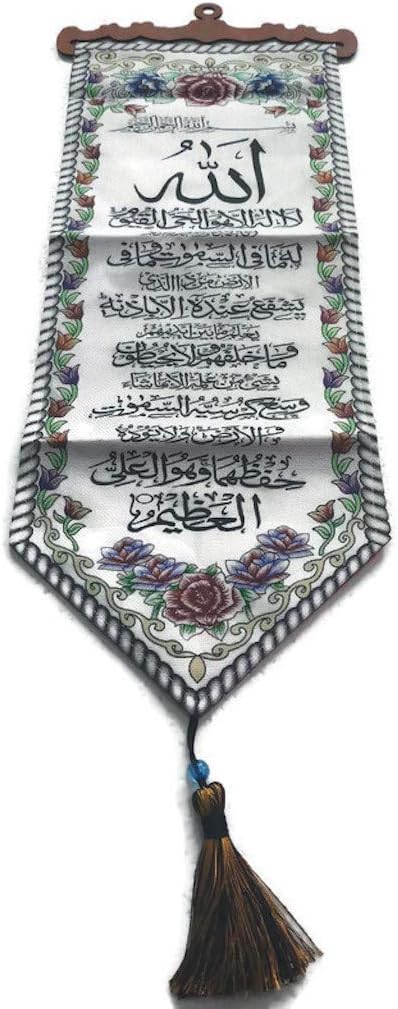 بسم الله الرحمن الرحيم
الله
لا اله الا هو الحي القيوم
له ما في السموت وما في
الارض من ذا الذي
يشفع عنده الا باذنه
يعلم ما بين ايديهم
وما خلفهم ولا يحيطون
بشيء من علمه الا بما شاء
وسع كرسيه السموت
والارض ولا يؤده
حفظهما وهو العلي
العظيم